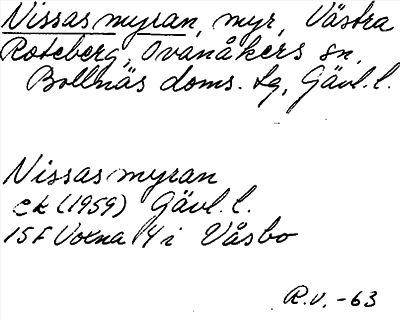 Nissasmyran, myr, Västra
Roteberg, Ovanåkers sn,
Bollnäs doms. tg, Gävl.l.
Nissasmyran
ek (1959) Gävl.l.
15F Voxna 4 i Våsbo
R.V. -63